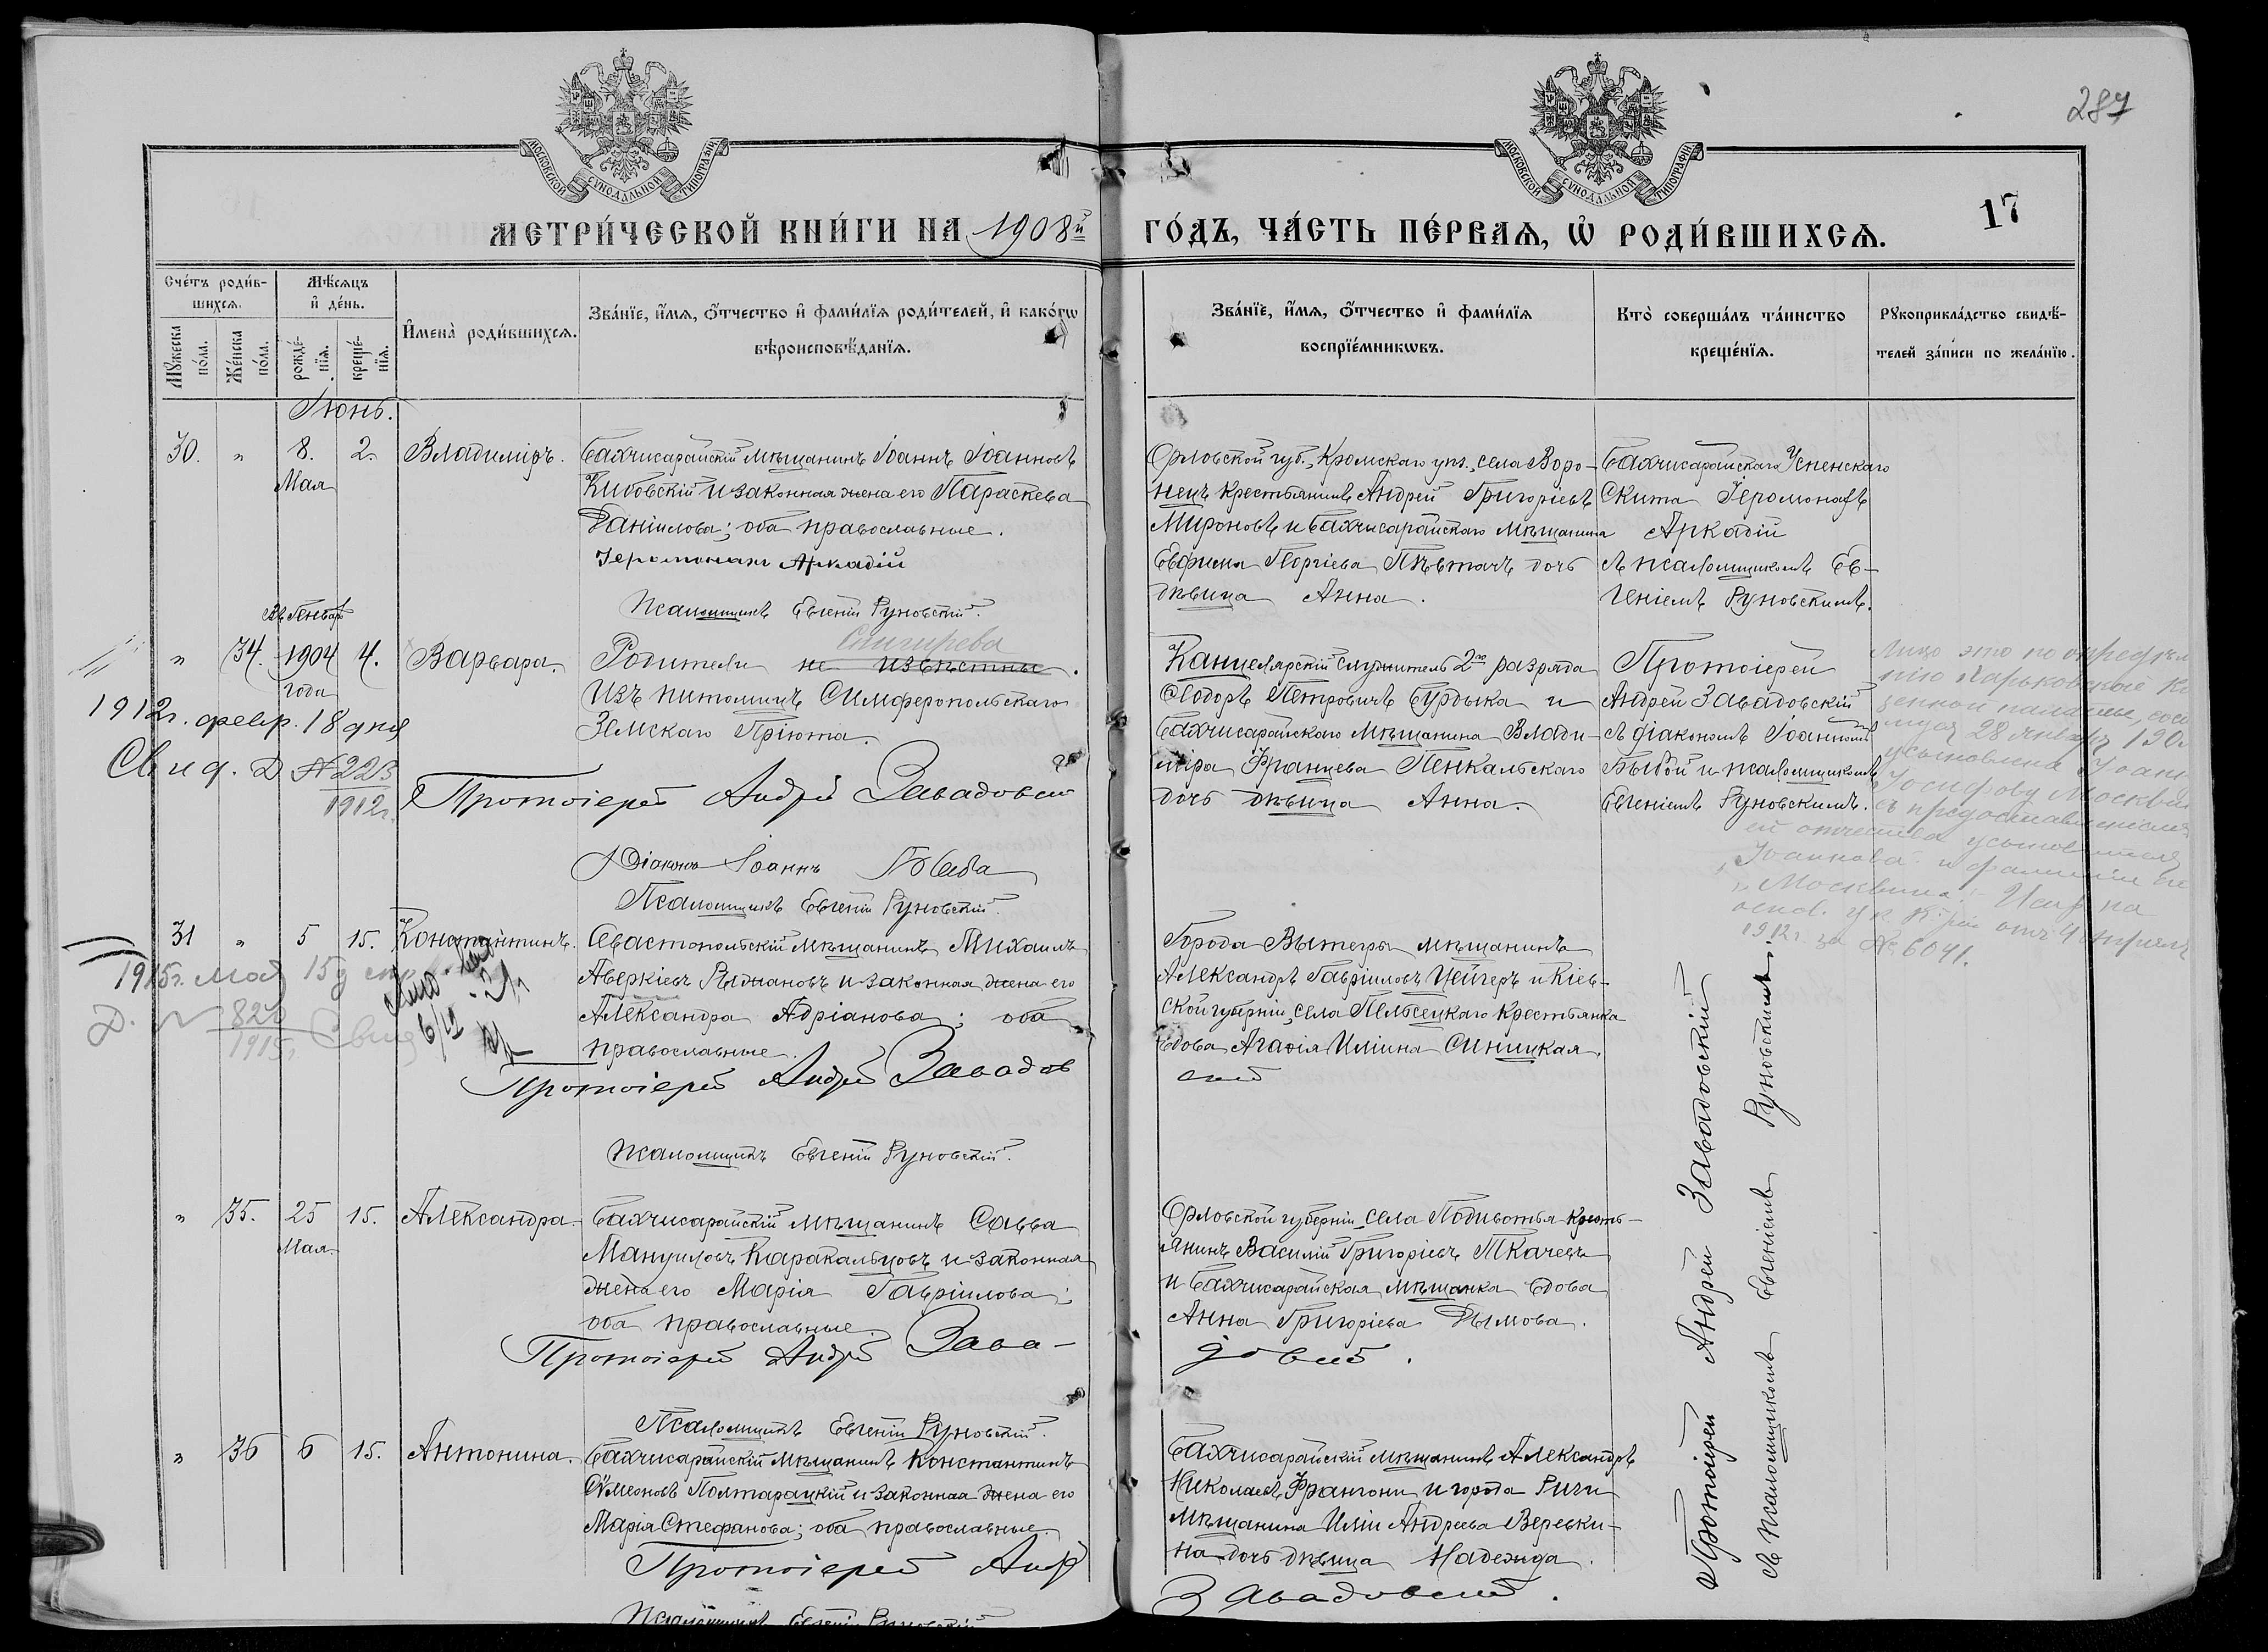 МОСКОВСКОЙ СѴНОДАЛЬНОЙ ТИПОГРАФІИ
МОСКОВСКОЙ СѴНОДАЛЬНОЙ ТИПОГРАФІИ
287
17
МЕТРИ́ЧЕСКОЙ КНИ́ГИ НА 1908й ГО́ДЪ, ЧА́СТЬ ПЕ́РВАѦ, Ѡ҆ РОДИ́ВШИХСѦ.
Сче́тъ роди́в-
шихсѧ.
Мꙋ́жеска по́ла.
Же́нска по́ла.
Мѣ́сѧцъ
и҆ де́нь.
рожде́-
нїѧ.
креще́-
нїѧ.
И҆мена̀ роди́вшихсѧ.
Зва́нїе, и҆́мѧ, ѻ҆́тчество и҆ фами́лїѧ роди́телей, и҆ како́гѡ
вѣроисповѣ́данїѧ.
Зва́нїе, и҆́мѧ, ѻ҆́тчество и҆ фами́лїѧ
воспрїе́мникѡвъ.
Кто̀ соверша́лъ та́инство
креще́нїѧ.
Рꙋкоприкла́дство свидѣ́-
телей за́писи по жела́нїю.
Іюнь.
30. " 8. 2. Владиміръ.
Мая
Бахчисарайскій мѣщанинъ Іоаннъ Іоанновъ
Кибовскій и законная жена его Параскева
Даніилова; оба православные.
Іеромонахъ Аркадій
Псаломщикъ Евгеній Руновскій.
Орловской губ., Кромскаго уѣз., села Воро-
нецъ крестьянинъ Андрей Григорьевъ
Мироновъ и Бахчисарайскаго мѣщанина
Евфима Георгіева дочь
дѣвица Анна.
Бахчисарайскаго Успенскаго
Скита Іеромонахъ
Аркадій
съ псаломщикомъ Ев-
геніемъ Руновскимъ.
Въ Январѣ
" 34. 1904 4. Варвара.
года
Снигирева
Родители не извѣстны.
Изъ питомицъ Симферопольскаго
Земскаго Пріюта.
Протоіерей Андрей Завадовскій
Діаконъ Іоаннъ
Псаломщикъ Евгеній Руновскій.
1912г. февр. 18 дня
Свид. Д №223
1912г.
Канцелярскій служитель 2го разряда
Ѳеодоръ Петровичъ Бурдыка и
Бахчисарайскаго мѣщанина Влади-
міра Францева Пенкальскаго
дочь дѣвица Анна.
Протоіерей
Андрей Завадовскій
съ діакономъ Іоанномъ
и псаломщикомъ
Евгеніемъ Руновскимъ.
Лицо это по опредѣле
нію Харьковской
палаты,
28 января 190
усыновлена Іоан
Іосифову Москви
съ предоставленіемъ
ей отчества усыновителя
"Іоаннова" и фамиліи его
"Москвина". Испр. на
основ. ук. К-ріи отъ 4 апрѣля
1912г. за № 6041.
31 " 5 15. Константинъ.
Севастопольскій мѣщанинъ Михаилъ
Аверкіевъ Рыжановъ и законная жена его
Александра Адріанова; оба
православные.
Протоіерей Андрей Завадов
скій
Псаломщикъ Евгеній Руновскій.
1915г. мая 15
Д. № 820
1915г. Свид
Города Вытегры мѣщанинъ
Александръ Гавріиловъ Цейгеръ и Кіев-
ской губерніи, села крестьянка
вдова Агаѳія Иліина Синицкая.
" 35. 25 15. Александра.
Мая.
Бахчисарайскій мѣщанинъ Савва
Мануиловъ Каракальцовъ и законная
жена его Марія Гавріилова;
оба православные.
Протоіерей Андрей Зава-
довскій.
Псаломщикъ Евгеній Руновскій.
Орловской губерніи, села Подывотья кресть-
янинъ Василій Григоріевъ Ткачевъ
и Бахчисарайская мѣщанка вдова
Анна Григоріева Дымова.
" 36 6 15. Антонина.
Бахчисарайскій мѣщанинъ Константинъ
Сѵмеоновъ Полтарацкій и законная жена его
Марія Стефанова; оба православные.
Протоіерей Андр
Завадовскій.
Псаломщикъ Евгеній Руновскій
Бахчисарайскій мѣщанинъ Александръ
Николаевъ Франгони и города Риги
мѣщанина Иліи Андреева Веревки-
на дочь дѣвица Надежда.
Протоіерей Андрей Завадовскій
съ псаломщикомъ Евгеніемъ Руновскимъ.